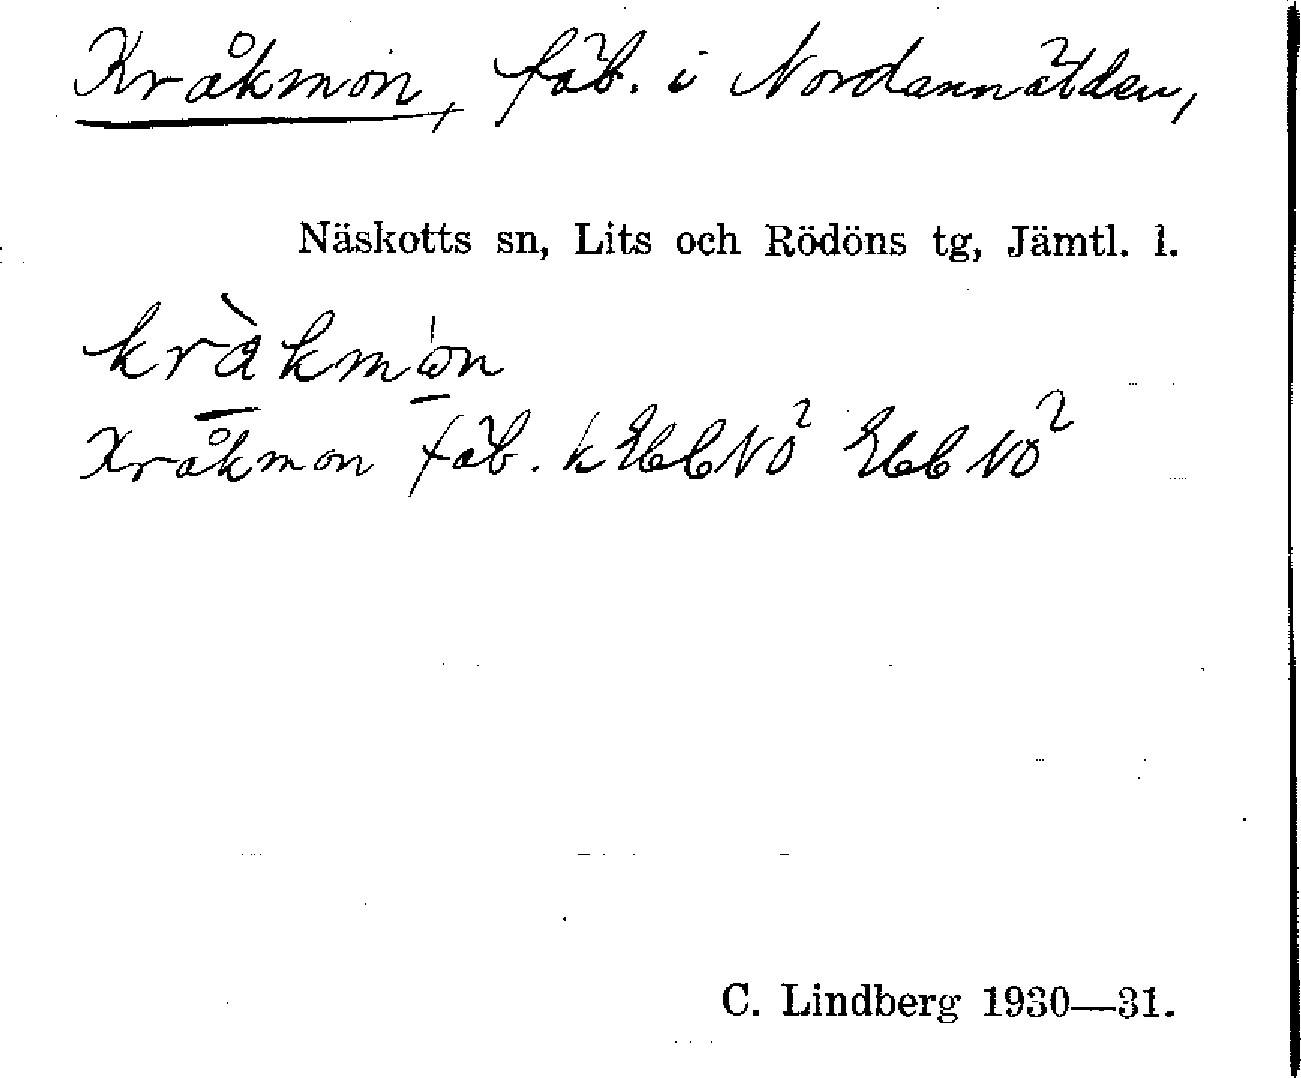 Kråkmon, fäb. i Nordannälden,
Näskotts sn, Lits och Rödöns tg, Jämtl. l.
kràkmòn
Kråkmon fäb.
C. Lindberg 1930—31.